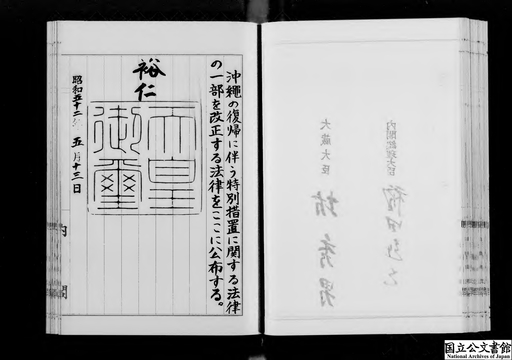 沖縄の復帰に伴う特別措置に関する法律
の一部を改正する法律をここに公布する。
裕仁
天皇
御璽
昭和五十二年 五月十三日
内閣
内閣総理大臣
大蔵大臣 坊秀男
国立公文書館
National Archives of Japan